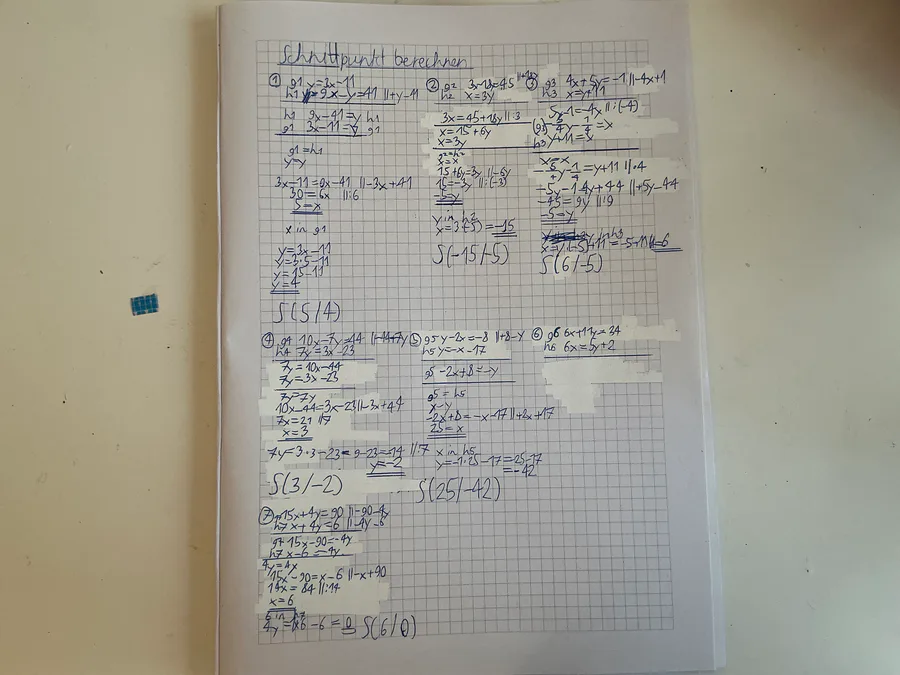 Schnittpunkt berechnen
① g1 y=3x-11
h1 9x-y=41 ||+y-41
h1 9x-41=y h1
g1 3x-11=y g1
g1=h1
y=y
3x-11=9x-41 ||-3x+41
30=6x ||:6
5=x
x in g1
y=3x-11
y=3·5-11
y=15-11
y=4
S(5/4)
② g2 3x-18y=45 ||+18y
h2 x=3y
3x=45+18y ||:3
x=15+6y
x=3y
g2=h2
x=x
15+6y=3y ||-6y
15=-3y ||:(-3)
-5=y
y in h2
x=3·(-5)=-15
S(-15/-5)
③ g3 4x+5y=-1 ||-4x+1
h3 x=y+11
5y+1=-4x ||:(-4)
(g3) -5/4y-1/4=x
h3 y+11=x
x=x
-5/4y-1/4=y+11 ||·4
-5y-1=4y+44 ||+5y-44
-45=9y ||:9
-5=y
y in h3
x=(-5)+11=-5+11=6
S(6/-5)
④ g4 10x-7y=44 ||-44+7y
h4 7y=3x-23
7y=10x-44
7y=3x-23
7y=7y
10x-44=3x-23 ||-3x+44
7x=21 ||7
x=3
7y=3·3-23=9-23=-14 ||:7
y=-2
S(3/-2)
⑤ g5 y-2x=-8 ||+8-y
h5 y=-x-17
g5 -2x+8=-y
g5=h5
x-y
-2x+8=-x-17 ||+2x+17
25=x
x in h5
y=-1·25-17=25-17
=-42
S(25/-42)
⑥ g6 6x+17y=34
h6 6x=5y+2
⑦ g7 15x+4y=90 ||-90-4y
h7 x+4y=6 ||-4y-6
g7 15x-90=-4y
h7 x-6=-4y
4y=4x
15x-90=x-6 ||-x+90
14x=84 ||:14
x=6
6 in h7
4y=6-6=0 S(6/0)